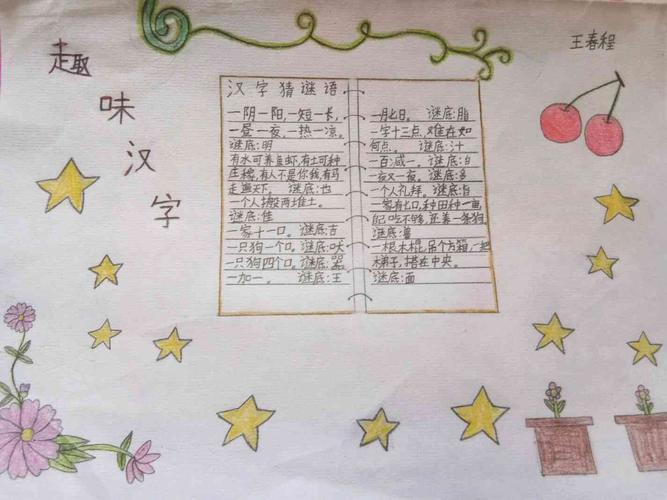 趣
味
汉
字
王春程
汉字猜谜语
一阴一阳,一短一长,
一昼一夜,一热一凉。
谜底:明
有水可养鱼虾,有土可种
庄稼,有人不是你我,有马
走遍天下。 谜底:也
一个人搬两堆土。
谜底:佳
一家十一口。谜底:吉
一只狗一个口。谜底:吠
一只狗四个口。谜底:器
一加一。 谜底:王
一月七日。 谜底:脂
一字十三点,难在如
何点。 谜底:汁
一百减一。谜底:白
一夜又一夜。谜底:多
一个人礼拜。谜底:旨
一家有七口,种田种一亩,
自己吃不够,还养一条狗
谜底:兽
一根木棍,吊个方箱,一把
梯子,搭在中央。
谜底:面